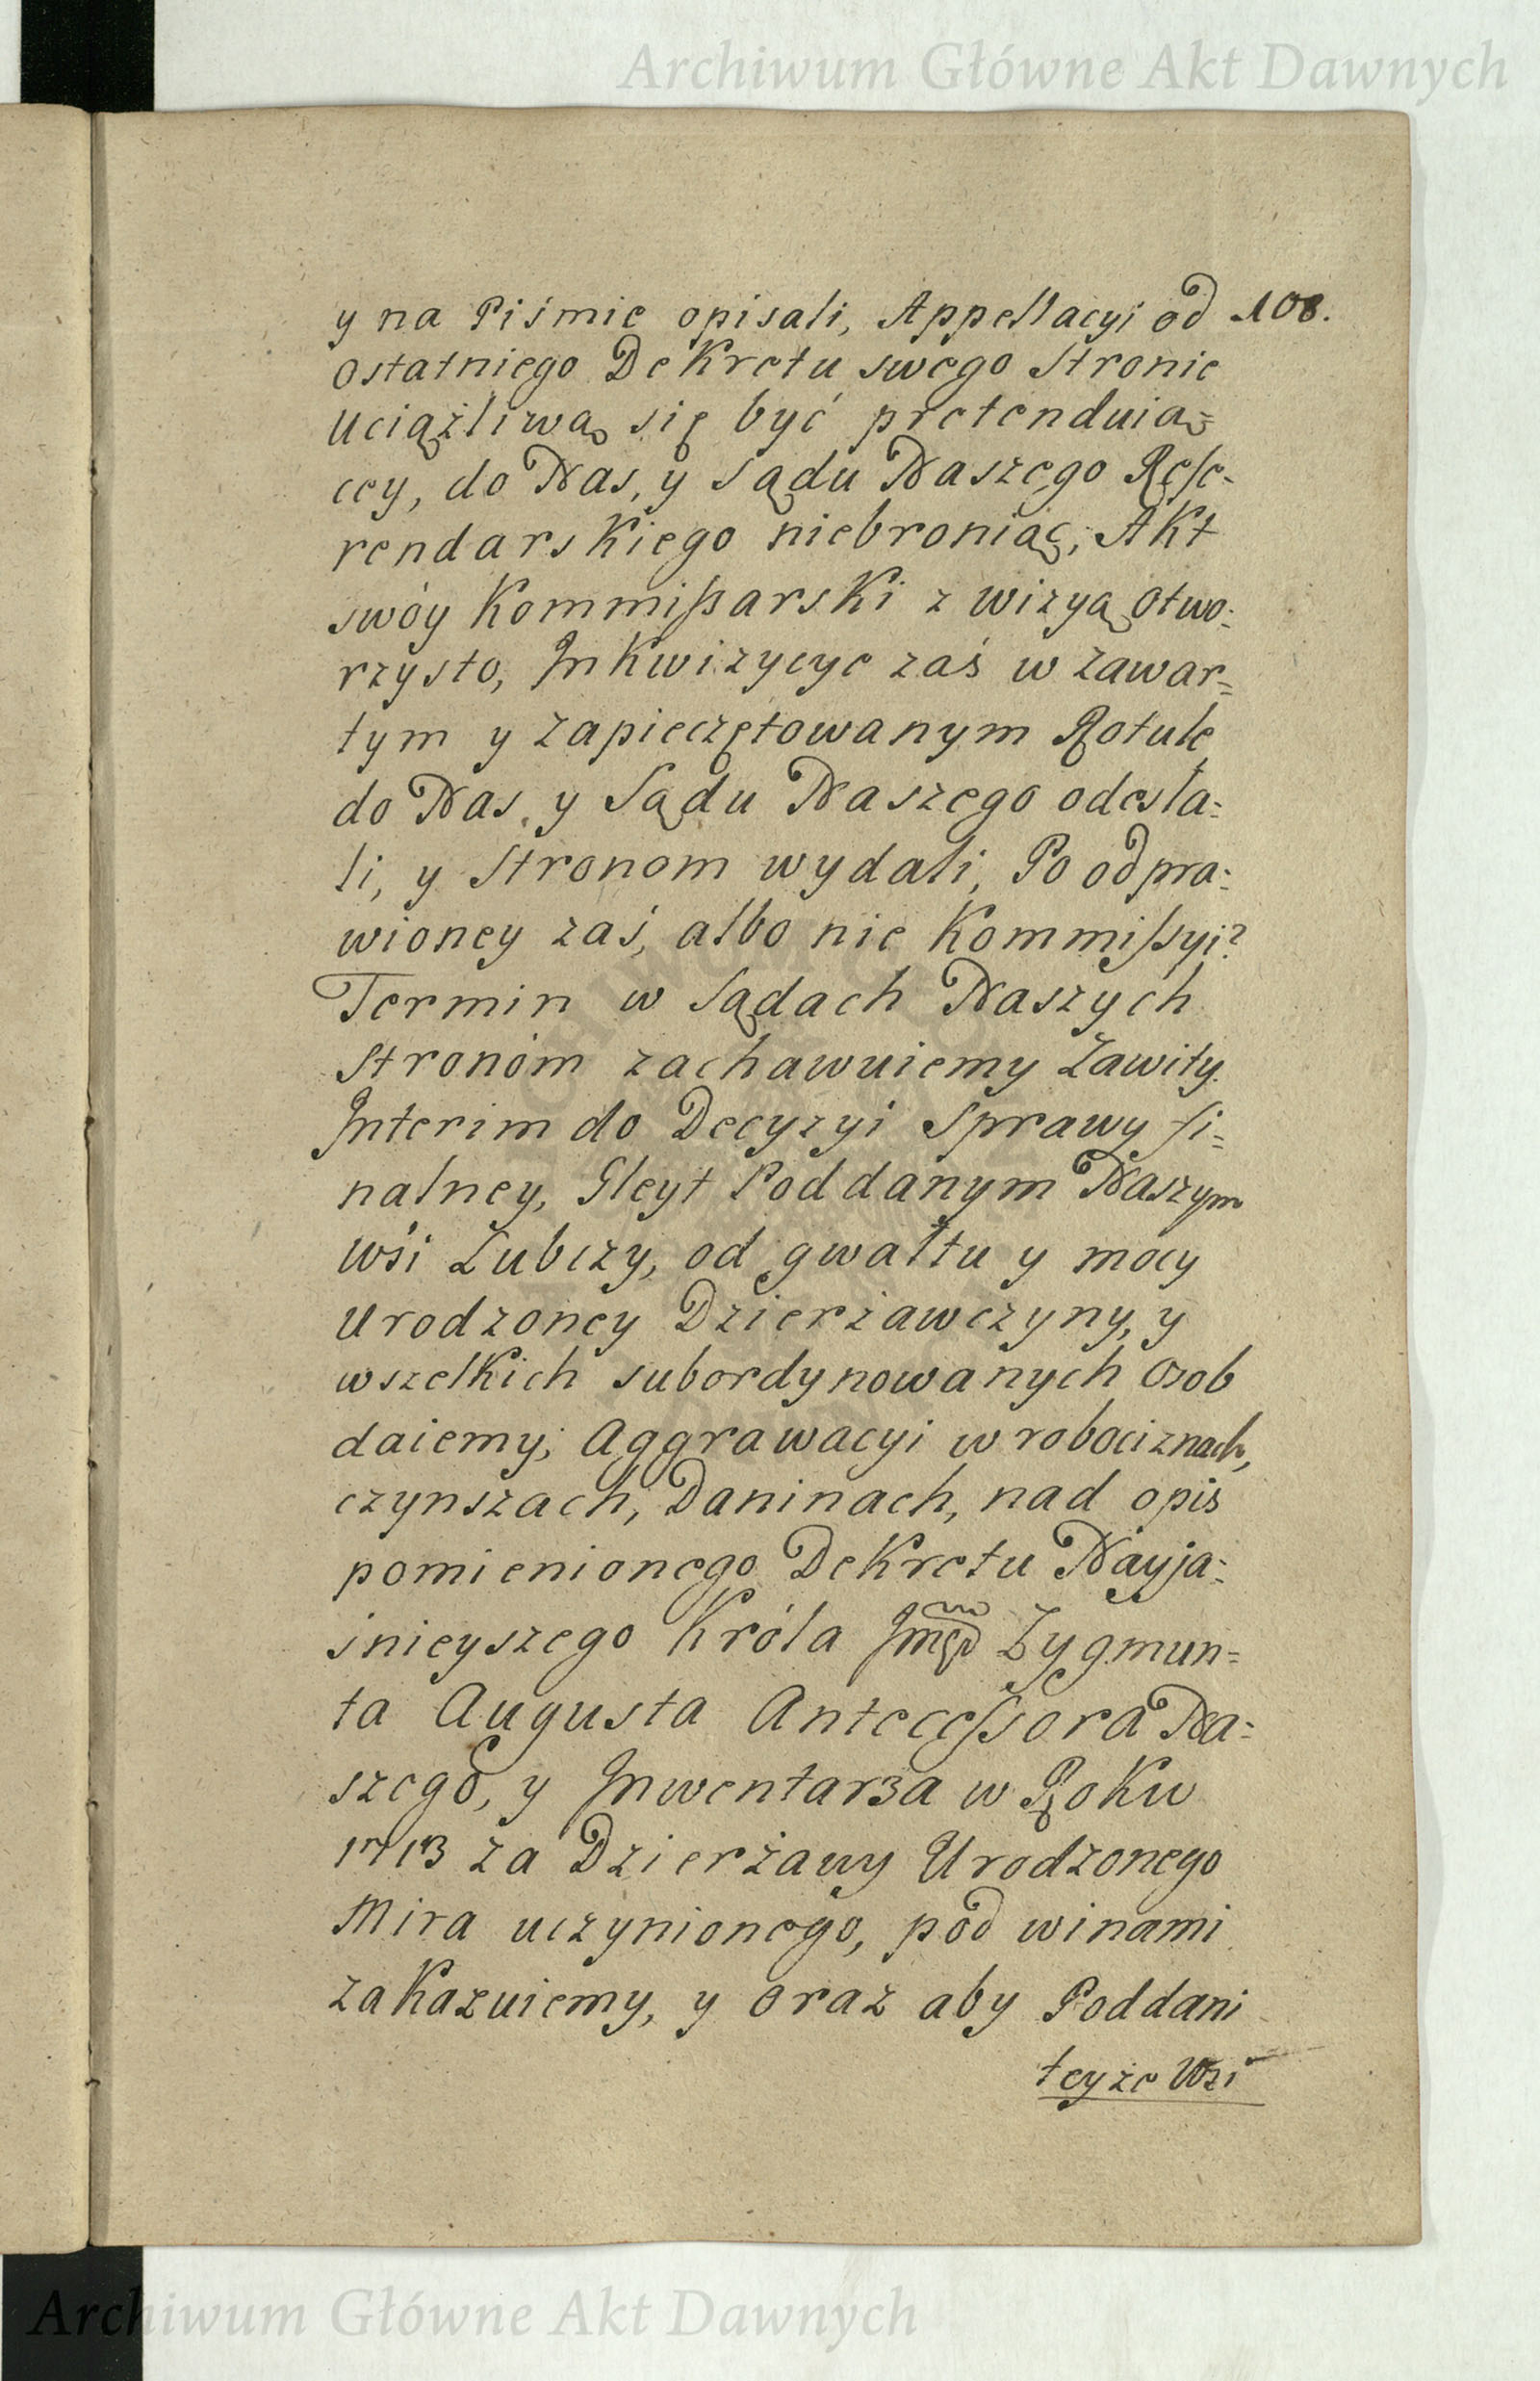 Archiwum Główne Akt Dawnych
y na Piśmie opisali, Appellacyi od 108.
ostatniego Dekretu swego Stronie
uciążliwą się być pretenduią=
cey, do Nas, y Sądu Naszego Refe-
rendarskiego niebroniąc; Akt
swóy Kommißarski z wizyą otwo:
rzysto, Inkwizycye zaś w zawar=
tym y zapieczętowanym Rotule
do Nas, y Sądu Naszego odesła:
li, y Stronom wydali, Po odpra:
wioney zaś, albo nie Kommißyi?
Termin w Sądach Naszych
Stronóm zachawuiemy Zawity.
Interim do Decyzyi Sprawy fi=
nalney, Gleyt Poddanym Naszym
Wśi Łubczy, od gwałtu y mocy
Urodzoney Dzierżawczyny, y
wszelkich subordynowanych osob
daiemy; Aggrawacyi w robociznach,
czynszach, Daninach, nad opis
pomienionego Dekretu Nayja:
śnieyszego Króla Zygmun=
ta Augusta Antecessora Na=
szego, y Inwentarza w Roku
1713 za Dzierżawy Urodzonego
Mira uczynionego, pod winami
zakazuiemy, y oraz aby Poddani
teyże Wsi
Archiwum Główne Akt Dawnych